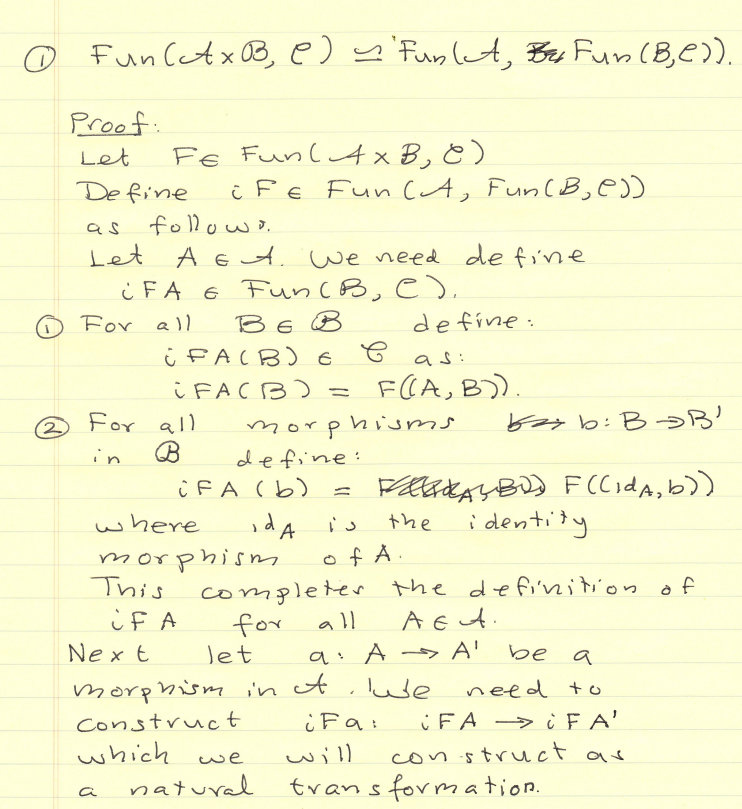 ① Fun(𝒜×ℬ, 𝒞) ≃ Fun(𝒜, Fun(ℬ,𝒞)).
Proof:
Let F∈ Fun(𝒜×ℬ, 𝒞)
Define iF ∈ Fun(𝒜, Fun(ℬ,𝒞))
as follows.
Let A ∈ 𝒜. We need define
iFA ∈ Fun(ℬ, 𝒞).
① For all B∈ℬ define:
iFA(B) ∈ 𝒞 as:
iFA(B) = F((A,B)).
② For all morphisms b: B→B'
in ℬ define:
iFA(b) = F((id_A, b))
where id_A is the identity
morphism of A.
This completes the definition of
iFA for all A∈𝒜.
Next let a: A → A' be a
morphism in 𝒜. We need to
construct iFa: iFA → iFA'
which we will construct as
a natural transformation.